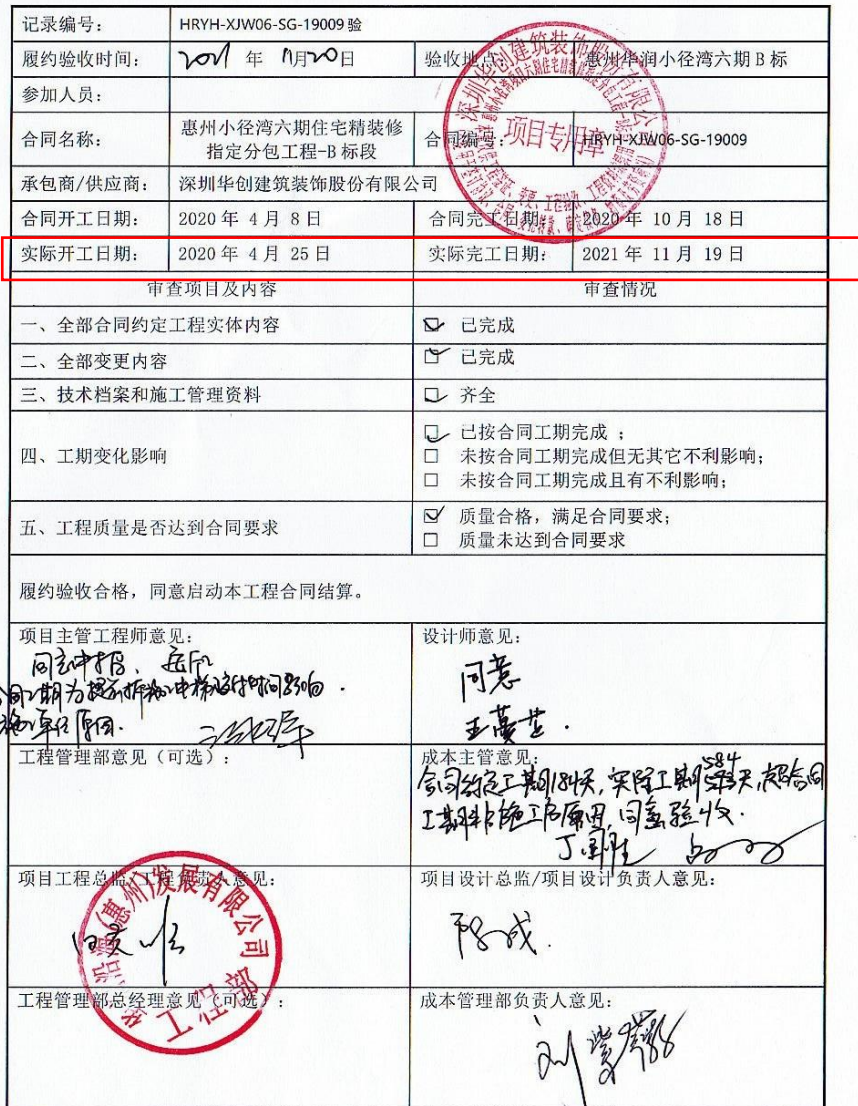 记录编号： HRYH-XJW06-SG-19009 验
履约验收时间： 2021 年 11月20日 验收地点： 惠州华润小径湾六期 B 标
参加人员：
合同名称： 惠州小径湾六期住宅精装修
指定分包工程-B 标段
合同编号： HRYH-XJW06-SG-19009
深圳华创建筑装饰股份有限公司
项目专用章
承包商/供应商： 深圳华创建筑装饰股份有限公司
合同开工日期： 2020 年 4 月 8 日 合同完工日期： 2020 年 10 月 18 日
实际开工日期： 2020 年 4 月 25 日 实际完工日期： 2021 年 11 月 19 日
审查项目及内容 审查情况
一、全部合同约定工程实体内容 ☑ 已完成
二、全部变更内容 ☑ 已完成
三、技术档案和施工管理资料 ☑ 齐全
四、工期变化影响
☑ 已按合同工期完成；
□ 未按合同工期完成但无其它不利影响；
□ 未按合同工期完成且有不利影响；
五、工程质量是否达到合同要求
☑ 质量合格，满足合同要求；
□ 质量未达到合同要求
履约验收合格，同意启动本工程合同结算。
项目主管工程师意见：
设计师意见：
同意
工程管理部意见（可选）：
成本主管意见：
合同约定工期184天，实际工期584天，超合同
工期非施工方原因，同意验收．
项目工程总监/工程负责人意见：
(惠州)发展有限公司
工程部
项目设计总监/项目设计负责人意见：
工程管理部总经理意见（可选）：
成本管理部负责人意见：